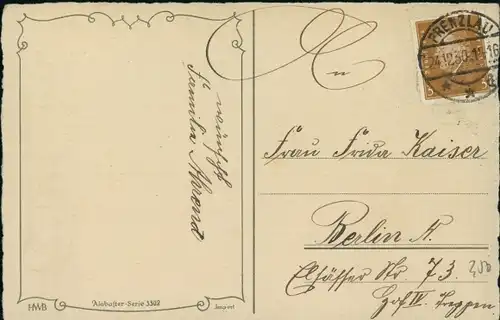 wünscht
Familie Ahrend
HWB
Alabaster-Serie 3302
Import
PRENZLAU
24.12.30.15-16
3
An
Frau Frida Kaiser
Berlin N.
Elsässer Str 73.
Hof IV. Treppen